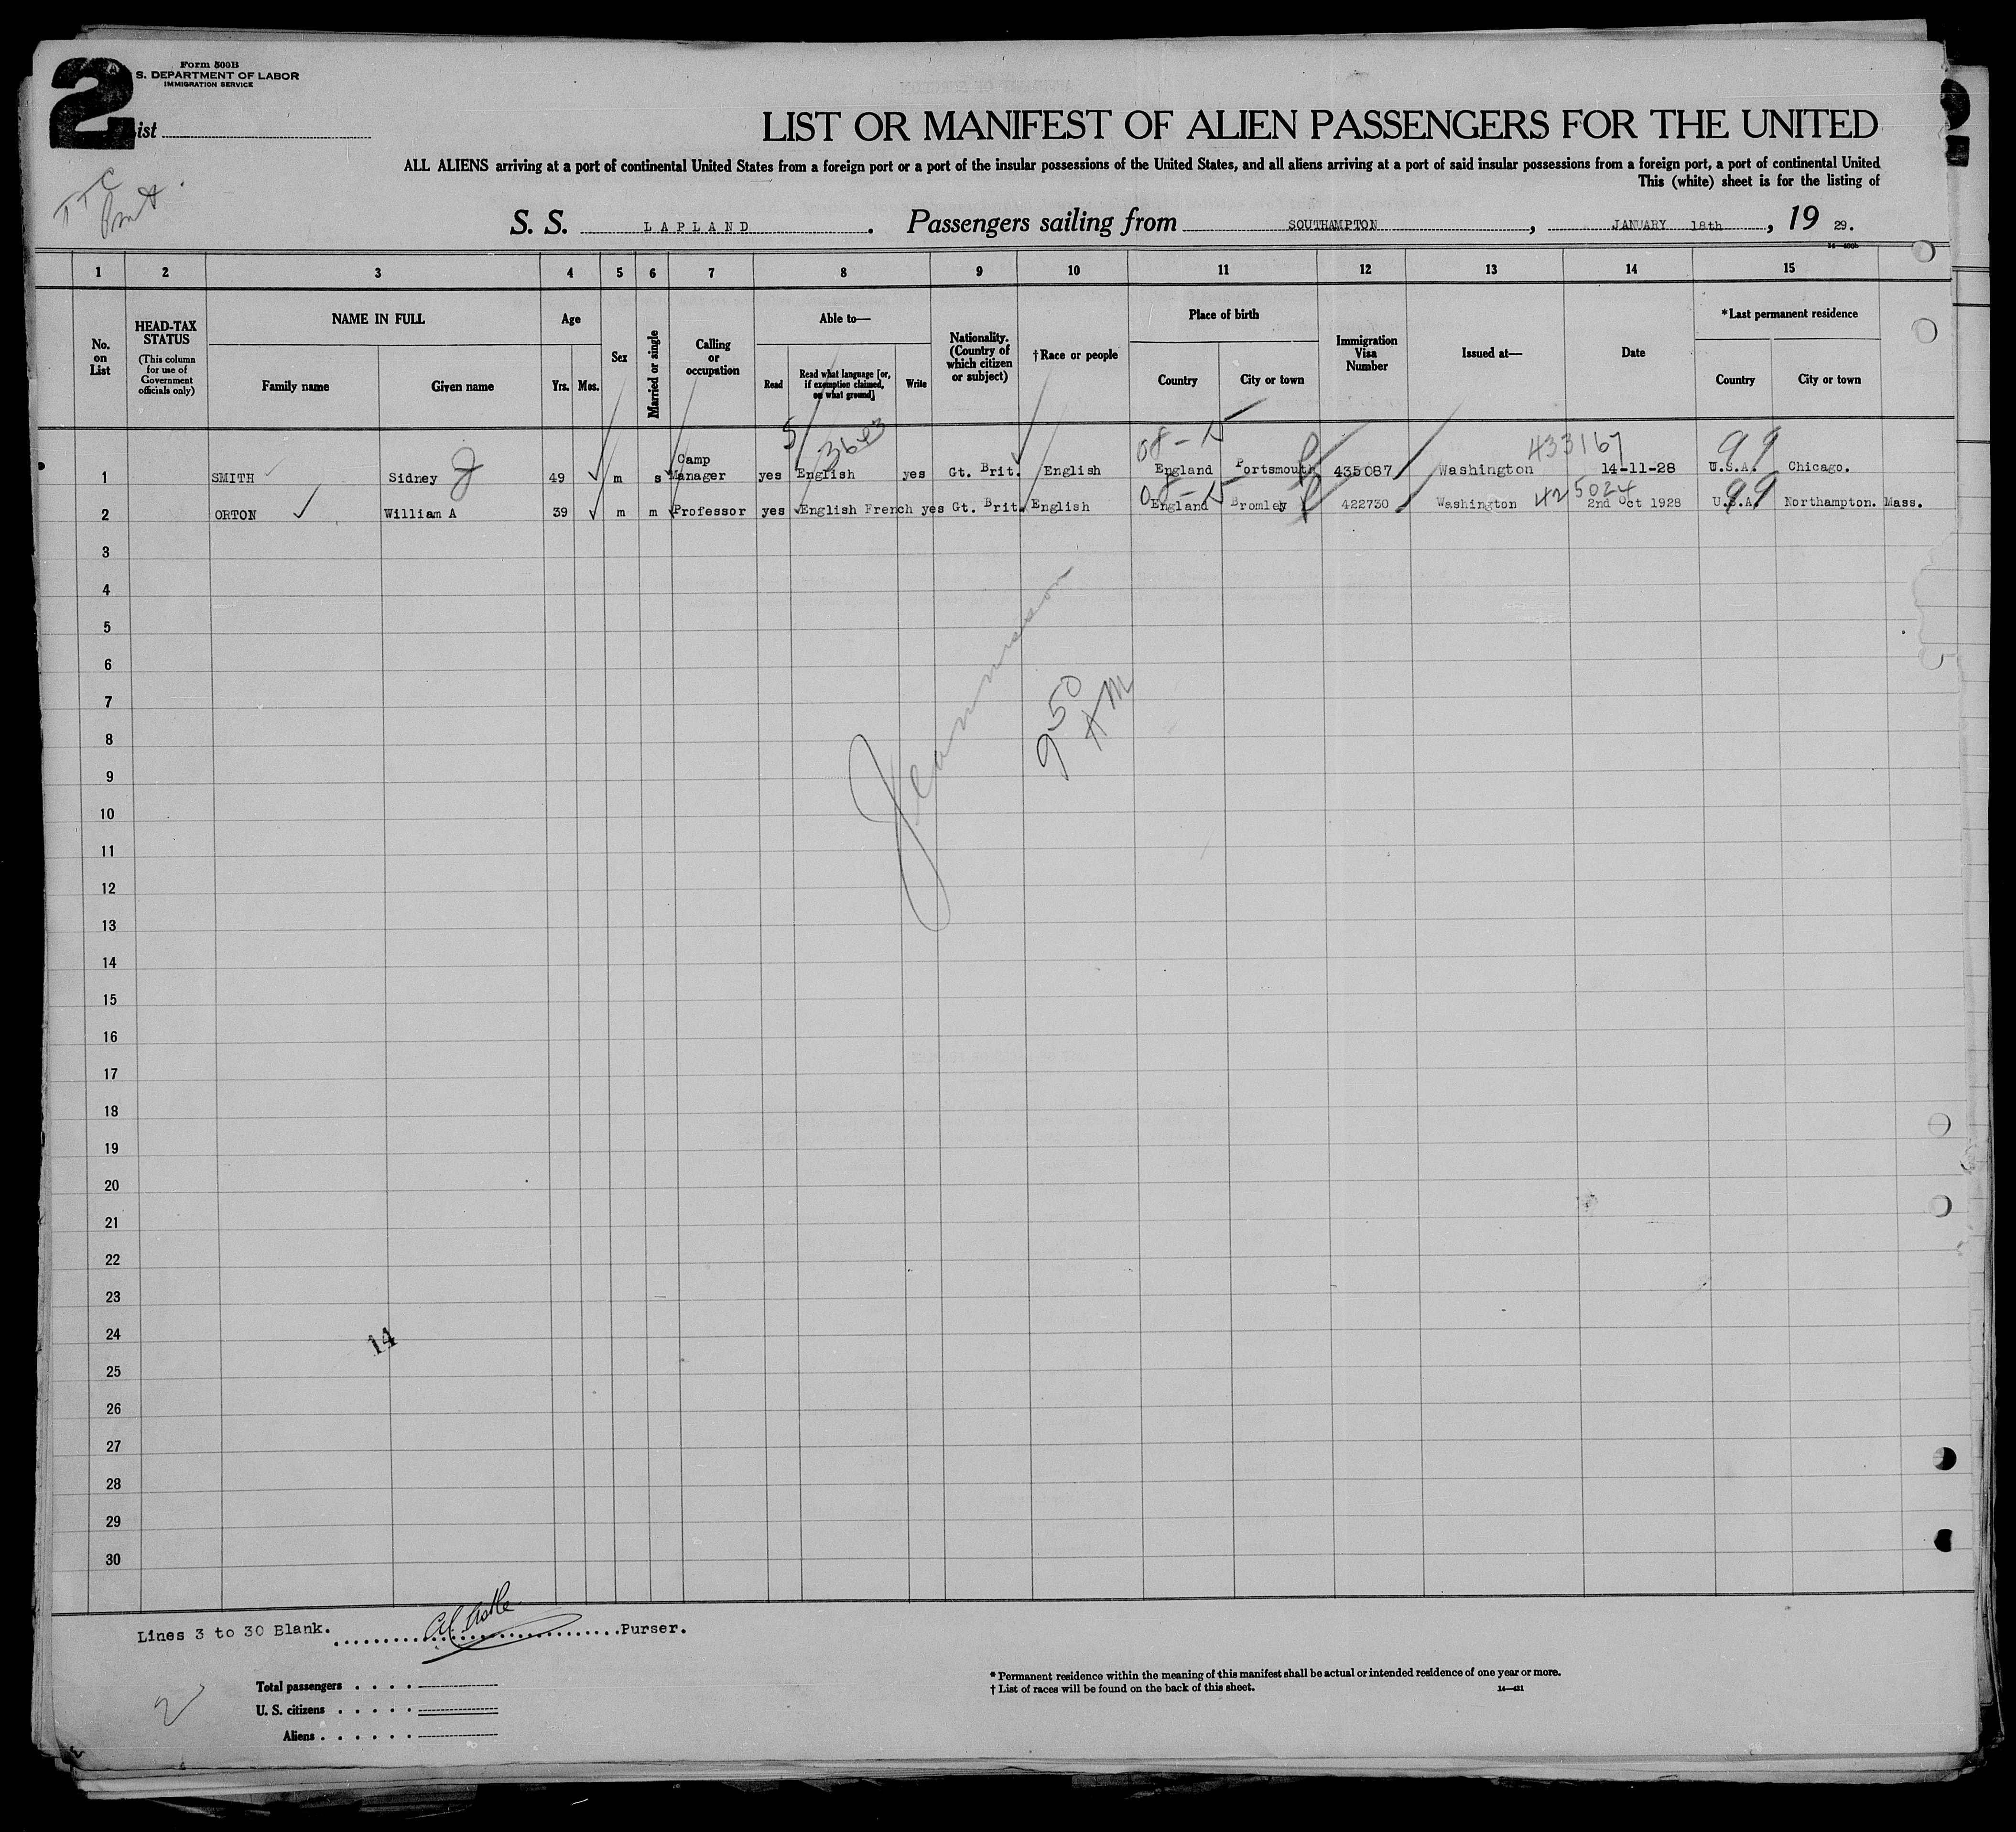 2
Form 500B
S. DEPARTMENT OF LABOR
IMMIGRATION SERVICE
List
LIST OR MANIFEST OF ALIEN PASSENGERS FOR THE UNITED
ALL ALIENS arriving at a port of continental United States from a foreign port or a port of the insular possessions of the United States, and all aliens arriving at a port of said insular possessions from a foreign port, a port of continental United
This (white) sheet is for the listing of
S. S. LAPLAND. Passengers sailing from SOUTHAMPTON, JANUARY 18th, 19 29.
1 2 3 4 5 6 7 8 9 10 11 12 13 14 15
No. on List
HEAD-TAX STATUS
(This column for use of Government officials only)
NAME IN FULL
Family name Given name
Age
Yrs. Mos.
Sex
Married or single
Calling or occupation
Able to—
Read
Read what language [or, if exemption claimed, on what ground]
Write
Nationality. (Country of which citizen or subject)
†Race or people
Place of birth
Country City or town
Immigration Visa Number
Issued at—
Date
*Last permanent residence
Country City or town
08-15 433167 99
1 SMITH Sidney J 49 m s Camp Manager yes English yes Gt. Brit. English England Portsmouth 435087 Washington 14-11-28 U.S.A. Chicago.
08-15 425024 99
2 ORTON William A 39 m m Professor yes English French yes Gt. Brit. English England Bromley 422730 Washington 2nd Oct 1928 U.S.A. Northampton. Mass.
3
4
5
6
7
8
9
10
11
12
13
14
15
16
17
18
19
20
21
22
23
24
25
26
27
28
29
30
9 50 AM
14
Lines 3 to 30 Blank. Purser.
Total passengers
U. S. citizens
Aliens
* Permanent residence within the meaning of this manifest shall be actual or intended residence of one year or more.
† List of races will be found on the back of this sheet.
2